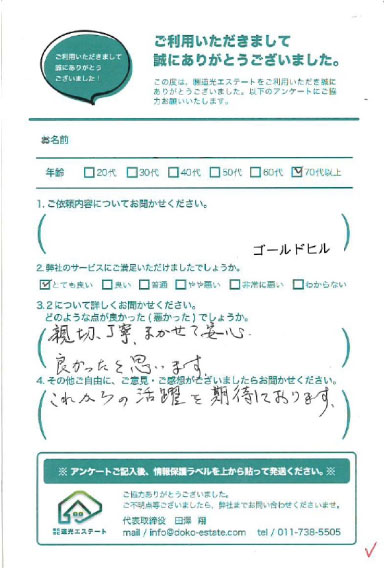 ご利用いただきまして
誠にありがとう
ございました！
ご利用いただきまして
誠にありがとうございました。
この度は、㈱道光エステートをご利用いただき誠に
ありがとうございました。以下のアンケートにご協
力お願いいたします。
お名前
年齢 □20代 □30代 □40代 □50代 □60代 ☑70代以上
1.ご依頼内容についてお聞かせください。
ゴールドヒル
2.弊社のサービスにご満足いただけましたでしょうか。
☑とても良い □良い □普通 □やや悪い □非常に悪い □わからない
3.2について詳しくお聞かせください。
どのような点が良かった(悪かった)でしょうか。
親切、丁寧、まかせて安心
良かったと思います。
4.その他ご自由に、ご意見・ご感想がございましたらお聞かせください。
これからの活躍を期待しております。
※ アンケートご記入後、情報保護ラベルを上から貼って発送ください。※
ご協力ありがとうございました。
ご不明点等ございましたら、弊社までお問い合わせくださいませ。
株式会社道光エステート
代表取締役 田澤 翔
mail / info@doko-estate.com tel / 011-738-5505